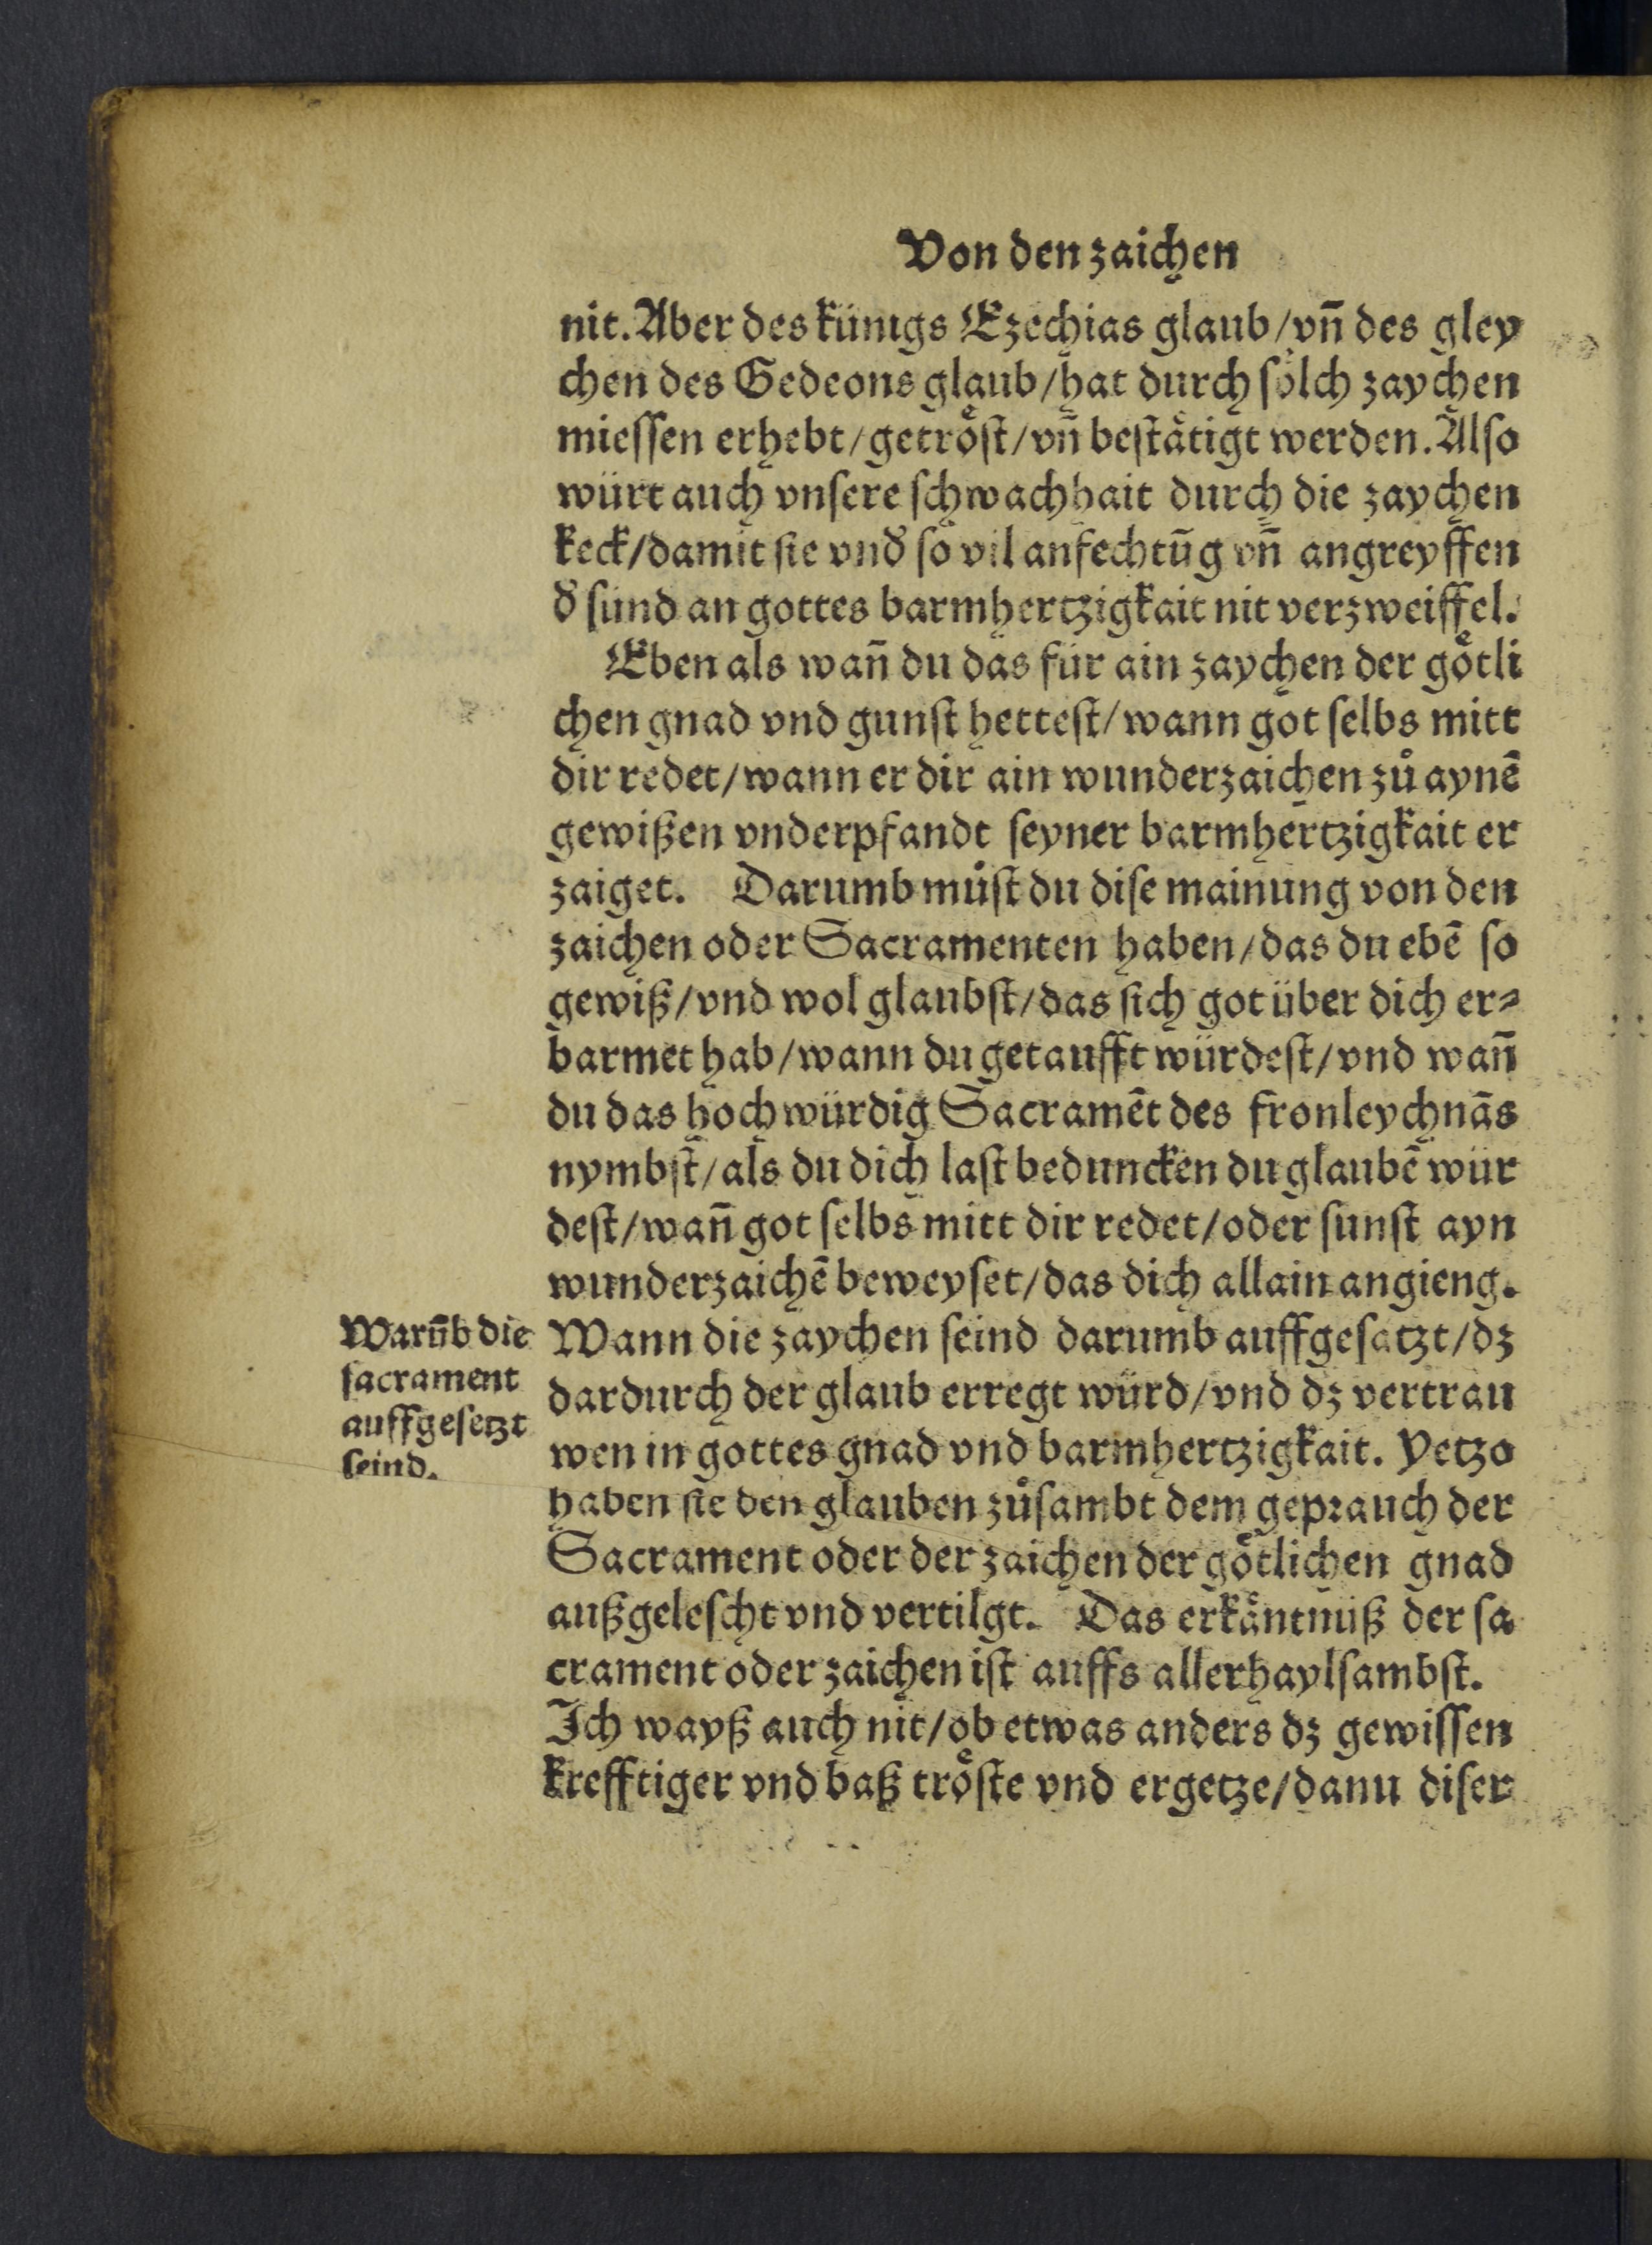 Von den zaichen
nit. Aber des künigs Ezechias glaub/vn̄ des gley
chen des Gedeons glaub/hat durch sölch zaychen
miessen erhebt/getröst/vn̄ bestätigt werden. Also
würt auch vnsere schwachhait durch die zaychen
keck/damit sie vnd̄ so vil anfechtūg vn̄ angreyffen
d̄ sünd an gottes barmhertzigkait nit verzweiffel.
Eben als wan̄ du das für ain zaychen der götli
chen gnad vnd gunst hettest/wann got selbs mitt
dir redet/wann er dir ain wunderzaichen zů aynē
gewißen vnderpfandt seyner barmhertzigkait er
zaiget. Darumb můst du dise mainung von den
zaichen oder Sacramenten haben/das du ebē so
gewiß/vnd wol glaubst/das sich got über dich er⸗
barmet hab/wann du getaufft würdest/vnd wan̄
du das hochwürdig Sacramēt des fronleychnās
nymbst/als du dich last beduncken du glaubē wür
dest/wan̄ got selbs mitt dir redet/oder sunst ayn
wunderzaichē beweyset/das dich allain angieng.
Warūb die
sacrament
auffgesetzt
seind.
Wann die zaychen seind darumb auffgesatzt/dz
dardurch der glaub erregt würd/vnd dz vertrau
wen in gottes gnad vnd barmhertzigkait. Yetzo
haben sie den glauben zůsambt dem geprauch der
Sacrament oder der zaichen der götlichen gnad
außgelescht vnd vertilgt. Das erkäntnüß der sa
crament oder zaichen ist auffs allerhaylsambst.
Ich wayß auch nit/ob etwas anders dz gewissen
krefftiger vnd baß tröste vnd ergetze/danu diser